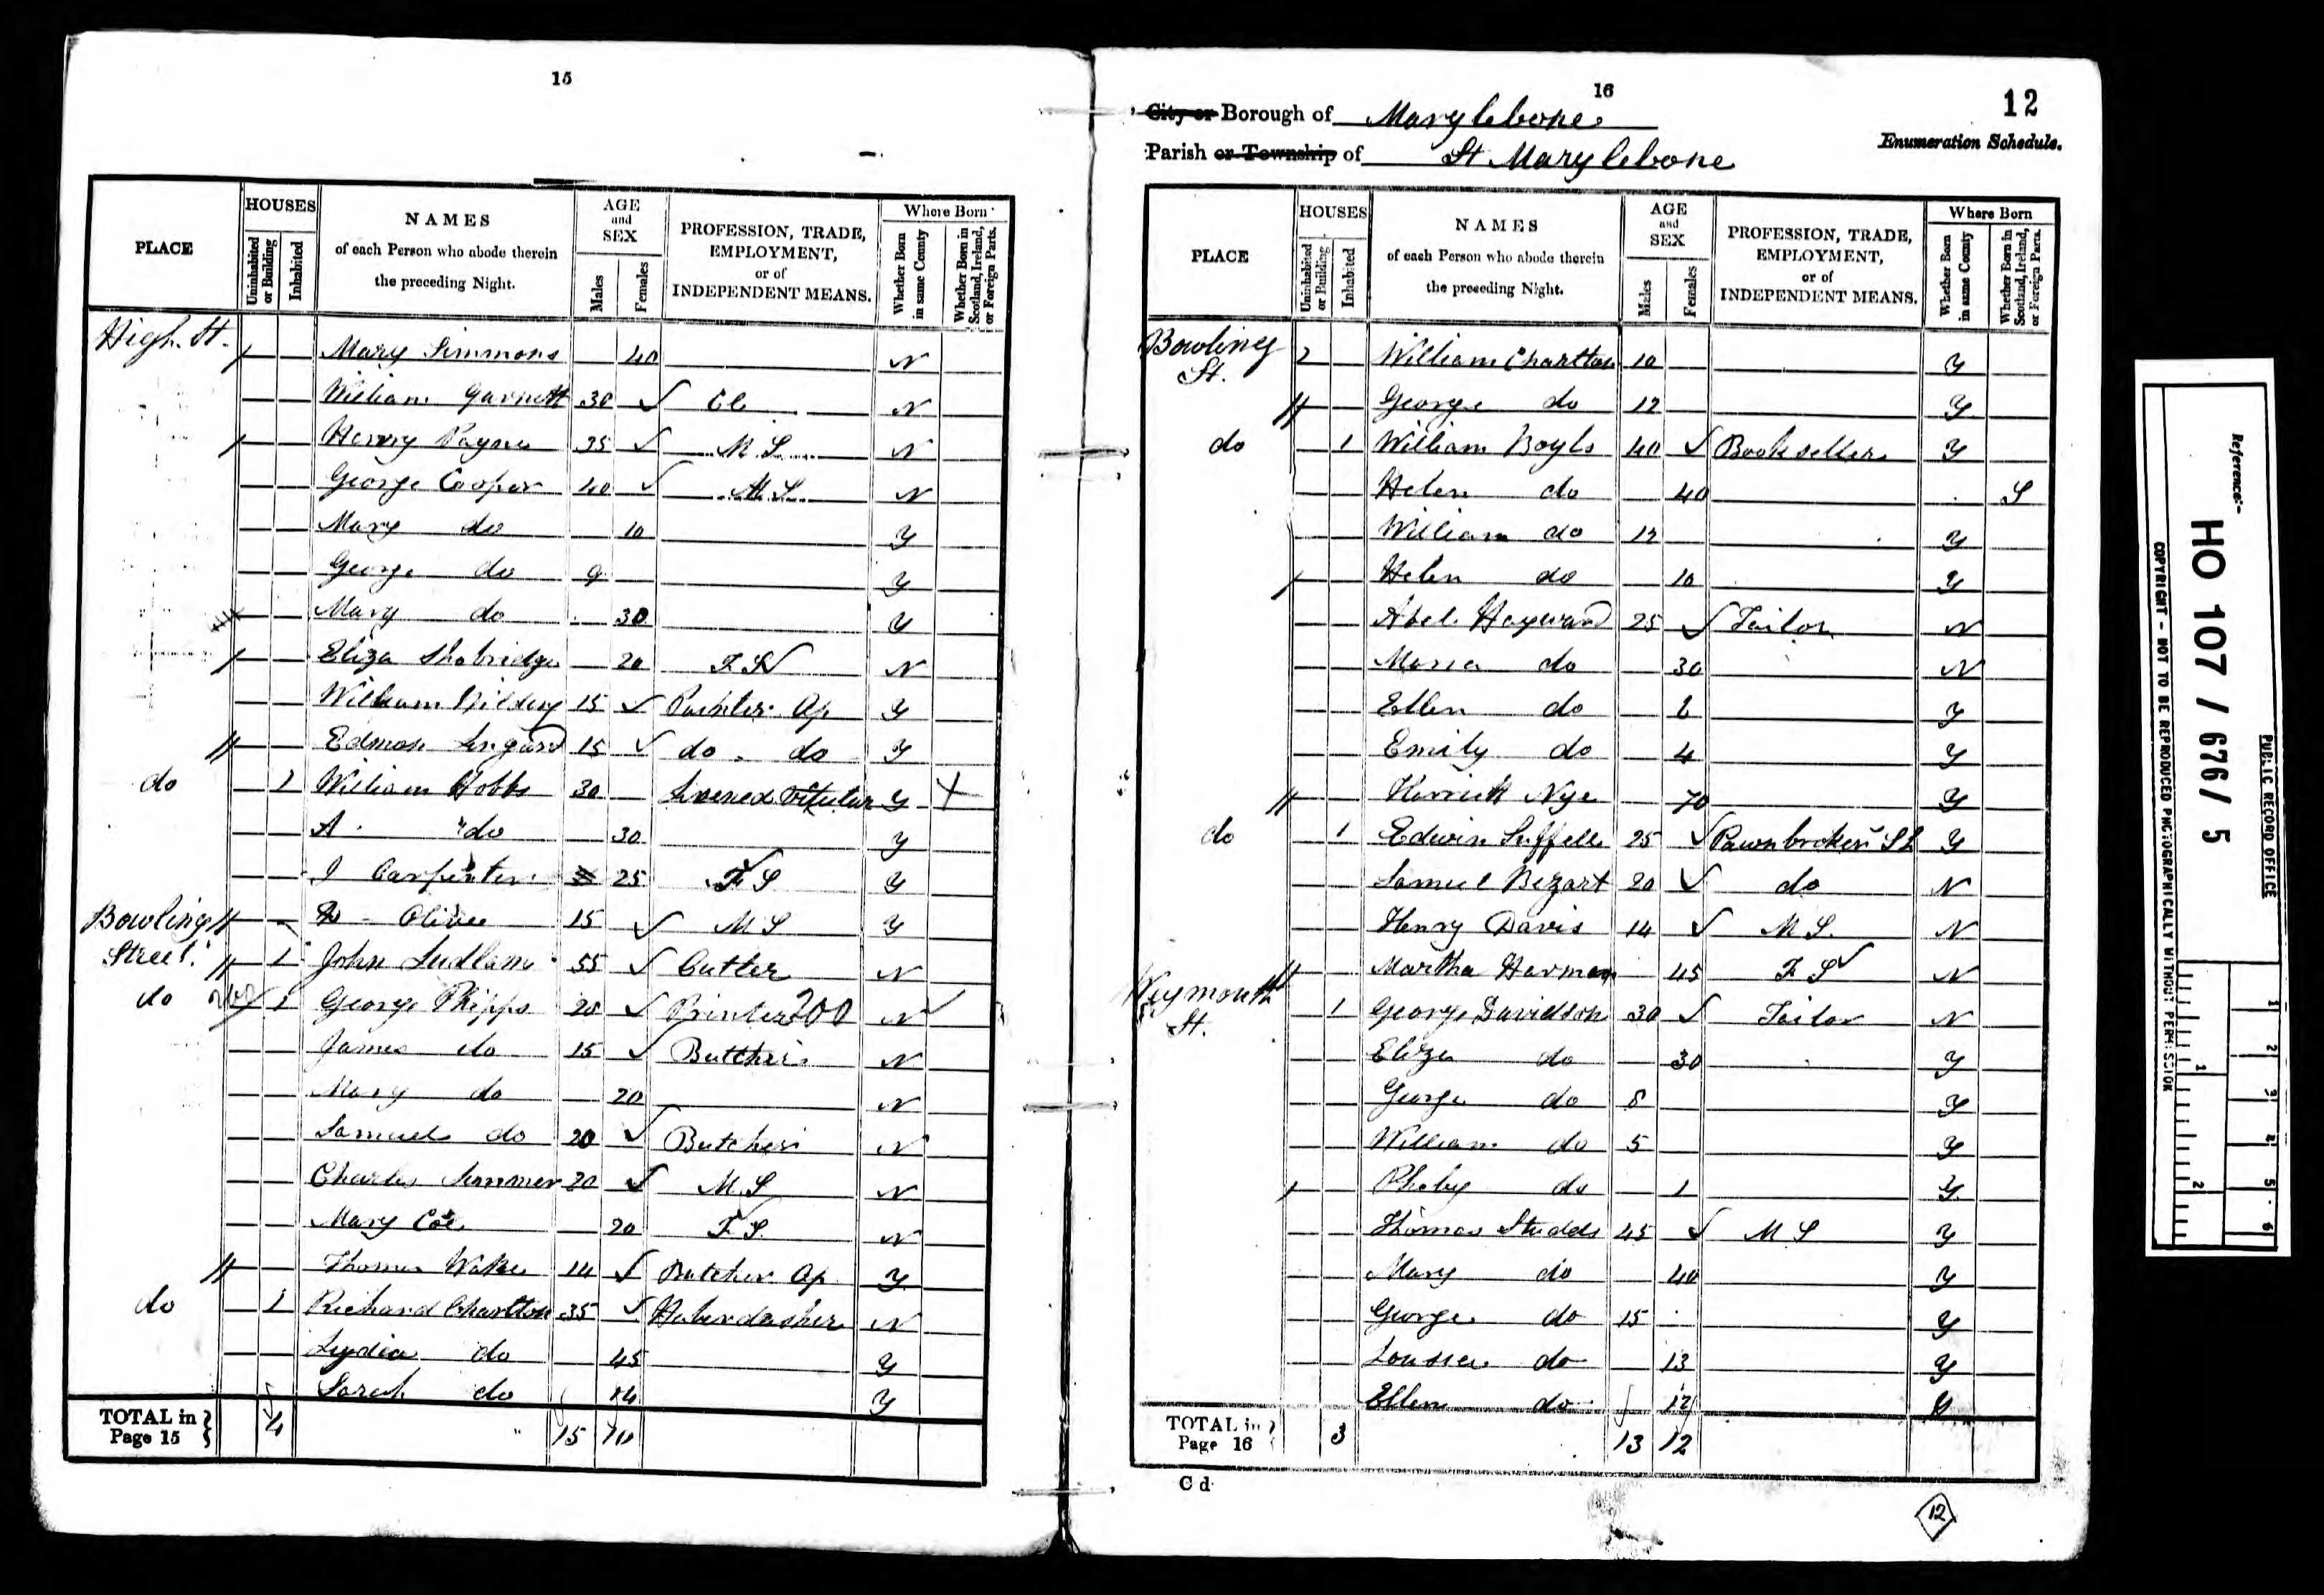 15
HOUSES
AGE and SEX
Where Born
PLACE
Uninhabited or Building
Inhabited
NAMES
of each Person who abode therein
the preceding Night.
Males
Females
PROFESSION, TRADE,
EMPLOYMENT,
or of
INDEPENDENT MEANS.
Whether Born in same County
Whether Born in Scotland, Ireland, or Foreign Parts.
High St. Mary Simmons 40 N
William Garnett 30 Cl N
Henry Payne 35 M S N
George Cooper 40 M S N
Mary do 10 Y
George do 9 Y
Mary do 30 Y
Eliza 20 F S N
William 15 Painter Ap Y
15 do do Y
do 1 William Hobbs 30 Y
A do 30 Y
J Carpenter 25 F S Y
Oliver 15 M S Y
Bowling Street 1 John Ludlam 55 Cutler N
do 1 George Phipps 20 Printer 200 N
James do 15 Butcher N
Mary do 20 N
Samuel do 20 Butcher N
Charles 20 M S N
Mary Coe 20 F S N
Thomas 14 Butcher Ap Y
do 1 Richard Charlton 35 Haberdasher N
Lydia do 45 Y
Sarah do 14 Y
TOTAL in Page 15 4 15 10
16
12
City or Borough of Marylebone
Parish or Township of St Marylebone
Enumeration Schedule.
HOUSES
AGE and SEX
Where Born
PLACE
Uninhabited or Building
Inhabited
NAMES
of each Person who abode therein
the preceding Night.
Males
Females
PROFESSION, TRADE,
EMPLOYMENT,
or of
INDEPENDENT MEANS.
Whether Born in same County
Whether Born in Scotland, Ireland, or Foreign Parts.
Bowling St. William Charlton 10 Y
George do 12 Y
do 1 William Boyls 40 Bookseller Y
Helen do 40 S
William do 12 Y
Helen do 10 Y
Abel Hayward 25 Tailor N
Maria do 30 N
Ellen do Y
Emily do 4 Y
Nye 70 Y
do 1 Edwin Suffell 25 Pawnbrokers Sh Y
Samuel Bezart 20 do N
Henry Davis 14 M S. N
Martha Harman 45 F S N
Weymouth St. 1 George Davidson 30 Tailor N
Eliza do 30 Y
George do 8 Y
William do 5 Y
Pheby do 1 Y
Thomas Studds 45 M S Y
Mary do 40 Y
George do 15 Y
Louisa do 13 Y
Ellen do 12 Y
TOTAL in Page 16 3 13 12
C d
12
PUBLIC RECORD OFFICE
Reference:-
HO 107 / 676 / 5
COPYRIGHT - NOT TO BE REPRODUCED PHOTOGRAPHICALLY WITHOUT PERMISSION
1 2 3 4 5 6
1 2